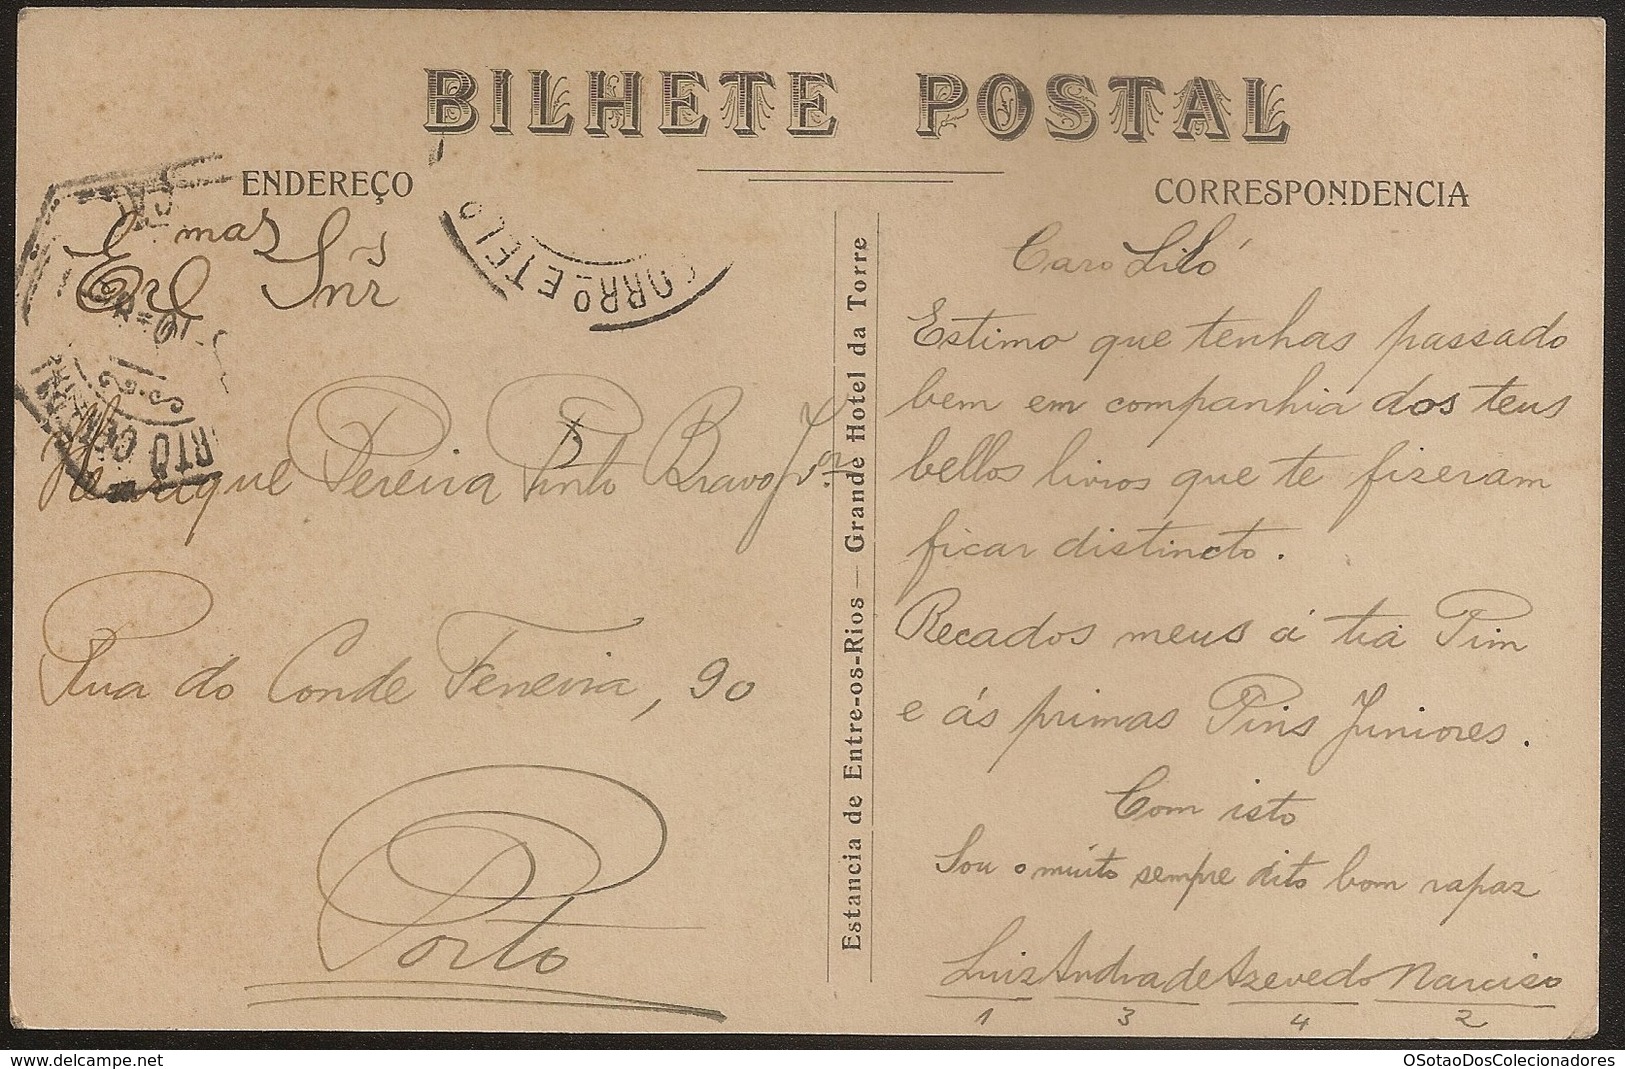 BILHETE POSTAL
ENDEREÇO
CORRESPONDENCIA
CORRº E TEL
RTO CEN
Snrs
Henrique Pereira Pinto Bravo Jor
Rua do Conde Ferreira, 90
Porto
Estancia de Entre-os-Rios — Grande Hotel da Torre
Caro Liló
Estimo que tenhas passado
bem em companhia dos teus
bellos livros que te fizeram
ficar distincto.
Recados meus á tia Pim
e ás primas Pins Juniores.
Com isto
Sou o muito sempre dito bom rapaz
Luiz Andrade Azevedo Narciso
1 3 4 2
www.delcampe.net
OSotaoDosColecionadores